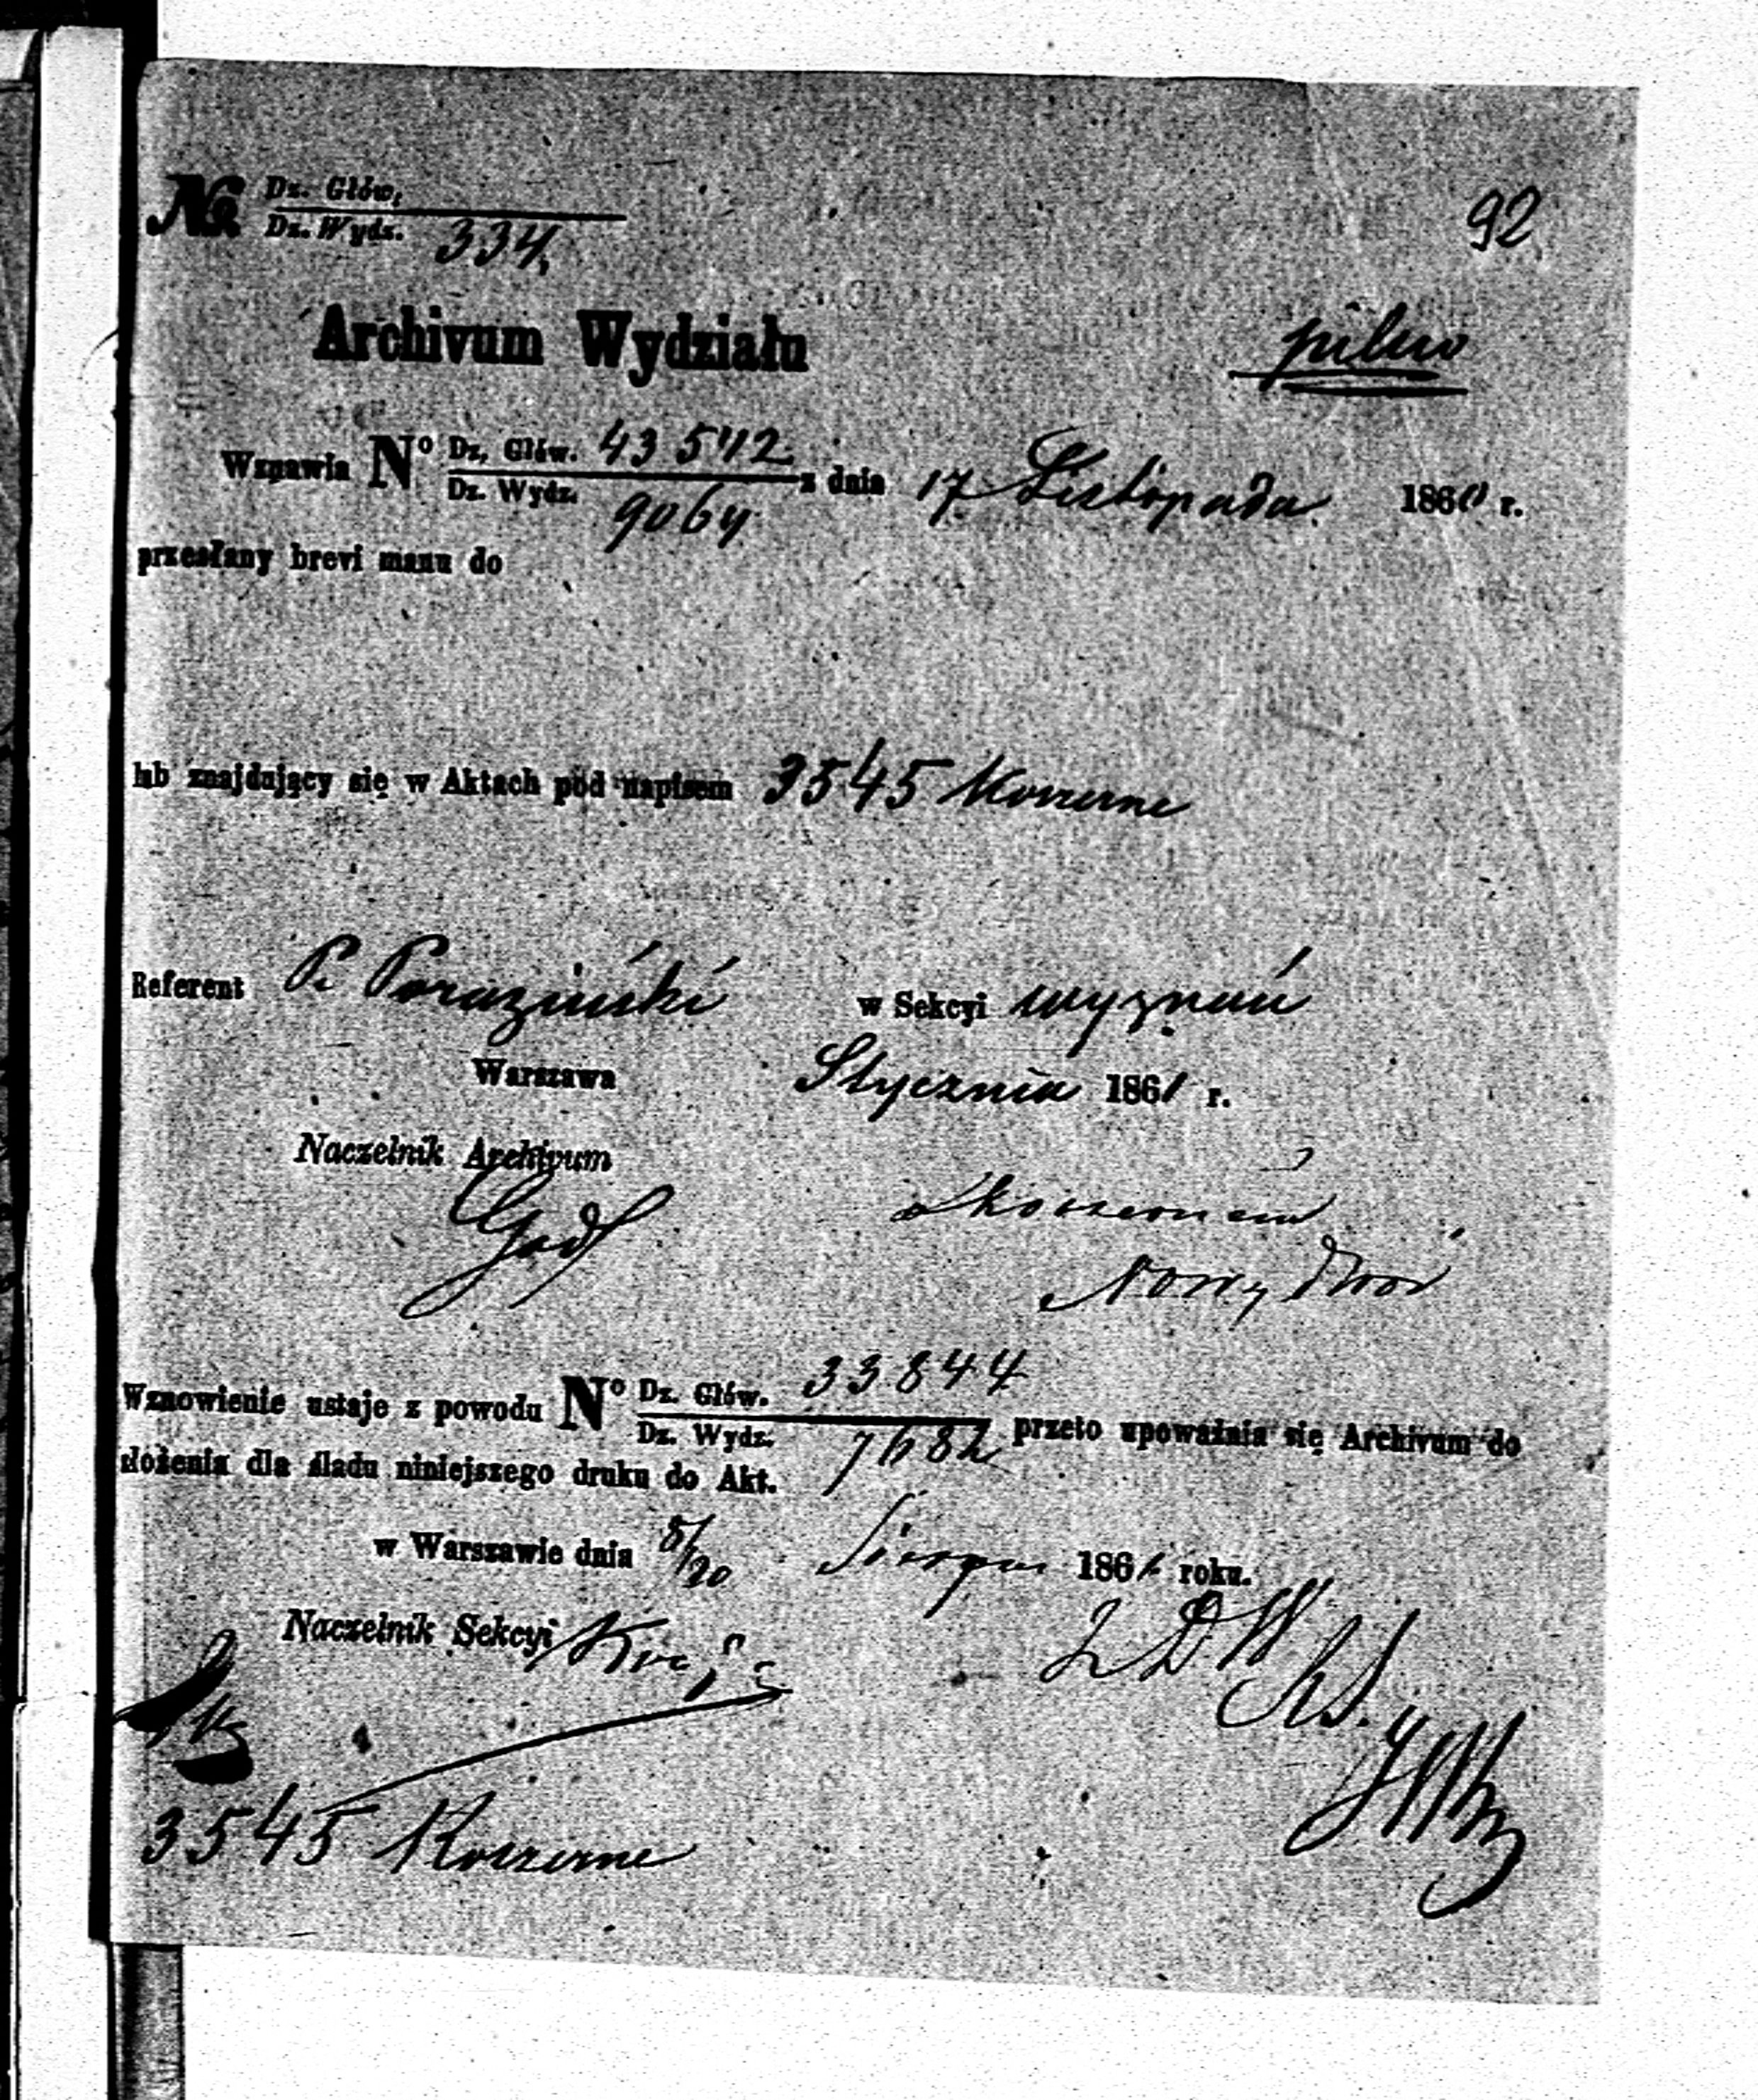 № Dz. Głów,
Dz. Wydz. 334,
92
Archivum Wydziału
pilno
Wznawia Nº Dz. Głów. 43542 z dnia 17 Listopada 1860 r.
Dz. Wydz. 9064
przesłany brevi manu do
lub znajdujący się w Aktach pod napisem 3545 Koszerne
Referent P. Poraziński w Sekcyi wyznań
Warszawa Stycznia 1861 r.
Naczelnik Archivum
Nowy Dwór
Wznowienie ustaje z powodu Nº Dz. Głów. 33844 przeto upoważnia się Archivum do
Dz. Wydz.
złożenia dla śladu niniejszego druku do Akt.
w Warszawie dnia 8/20 Sierpnia 1861 roku.
Naczelnik Sekcyi
3545 Koszerne